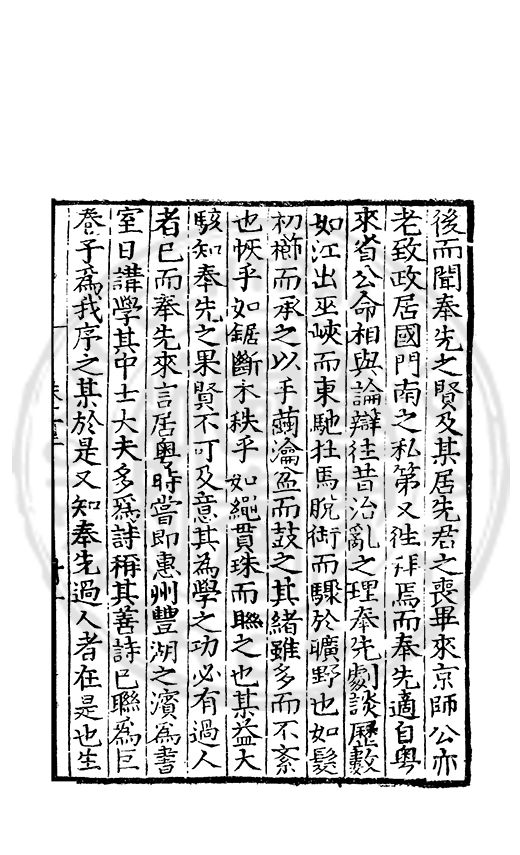 後而聞奉先之賢及其居先君之喪畢來京師公亦
老致政居國門南之私第又徃拜焉而奉先適自粤
來省公命相與論辯徃昔治亂之理奉先劇談歷數
如江出巫峽而東馳壮馬脫銜而驟於曠野也如髮
初櫛而承之以手繭瀹盈而鼓之其緒雖多而不紊
也恢乎如鋸斷木秩乎如繩貫珠而聮之也其益大
駭知奉先之果賢不可及意其為學之功必有過人
者已而奉先來言居粤時嘗即惠州豐湖之濵為書
室日講學其中士大夫多為詩稱其善詩已聮為巨
卷子為我序之某於是又知奉先過人者在是也生